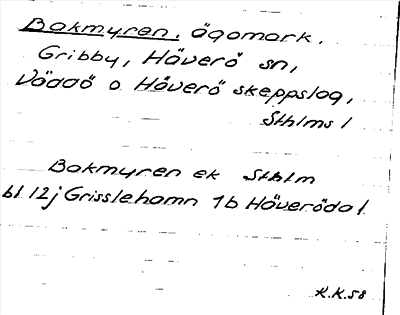 Bakmyren, ägomark.
Gribby, Häverö sn,
Väddö o Häverö skeppslag,
Sthlms l
Bakmyren ek Sthlm
bl 12j Grisslehamn 1b Häverödal
K.K.58